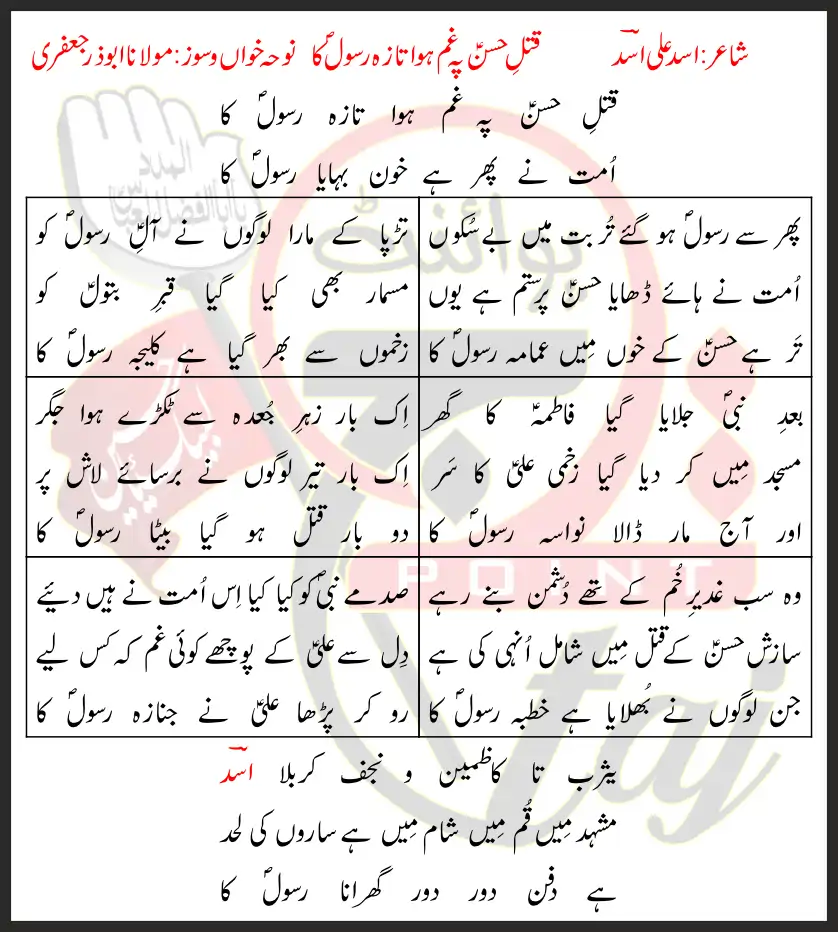 شاعر: اسد علی اسدؔ قتلِ حسنؑ پہ غم ہوا تازہ رسولؐ کا نوحہ خواں و سوز: مولانا ابوذر جعفری
قتلِ حسنؑ پہ غم ہوا تازہ رسولؐ کا
اُمت نے پھر ہے خون بہایا رسولؐ کا
پھر سے رسولؐ ہو گئے تُربت میں بے سُکوں
اُمت نے ہائے ڈھایا حسنؑ پر ستم ہے یوں
تَر ہے حسنؑ کے خوں مِیں عمامہ رسولؐ کا
تڑپا کے مارا لوگوں نے آلِؑ رسولؐ کو
مسمار بھی کیا گیا قبرِ بتولؑ کو
زخموں سے بھر گیا ہے کلیجہ رسولؐ کا
بعدِ نبیؐ جلایا گیا فاطمہؑ کا گھر
مسجد مِیں کر دیا گیا زخمی علیؑ کا سَر
اور آج مار ڈالا نواسہ رسولؐ کا
اِک بار زہرِ جُعدہ سے ٹکڑے ہوا جگر
اِک بار تیر لوگوں نے برسائے لاش پر
دو بار قتل ہو گیا بیٹا رسولؐ کا
وہ سب غدیرِ خُم کے تھے دُشمن بنے رہے
سازش حسنؑ کے قتل مِیں شامل اُنہی کی ہے
جن لوگوں نے بُھلایا ہے خطبہ رسولؐ کا
صدمے نبیؐ کو کیا کیا اِس اُمت نے ہیں دئیے
دِل سے علیؑ کے پوچھے کوئی غم کہ کس لیے
رو کر پڑھا علیؑ نے جنازہ رسولؐ کا
یثرب تا کاظمین و نجف کربلا اسدؔ
مشہد مِیں قُم مِیں شام مِیں ہے ساروں کی لحد
ہے دفن دور دور گھرانا رسولؐ کا
پوائنٹ
POINT
taj